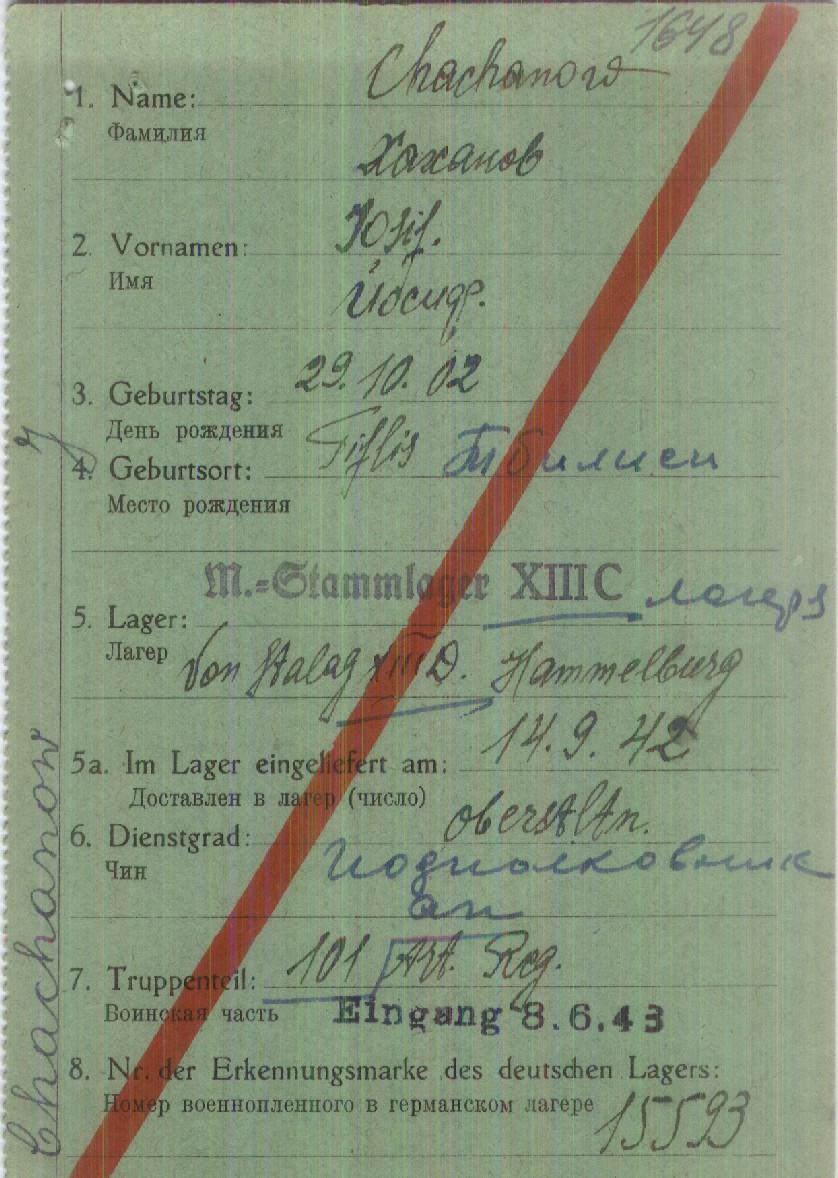 1648
1. Name: Chachanow
Фамилия
Хаханов
2. Vornamen: Josif.
Имя
Иосиф.
3. Geburtstag: 29.10.02
День рождения
4. Geburtsort: Tiflis Тбилиси
Место рождения
M.=Stammlager XIII C лагерь
5. Lager:
Лагерь
Von Stalag XIII D. Hammelburg
5a. Im Lager eingeliefert am: 14.9.42
Доставлен в лагерь (число)
6. Dienstgrad: Oberstltn.
Чин
Подполковник
7. Truppenteil: 101 Art. Reg.
Воинская часть
Eingang 8.6.43
8. Nr. der Erkennungsmarke des deutschen Lagers:
Номер военнопленного в германском лагере
15593
Chachanow J